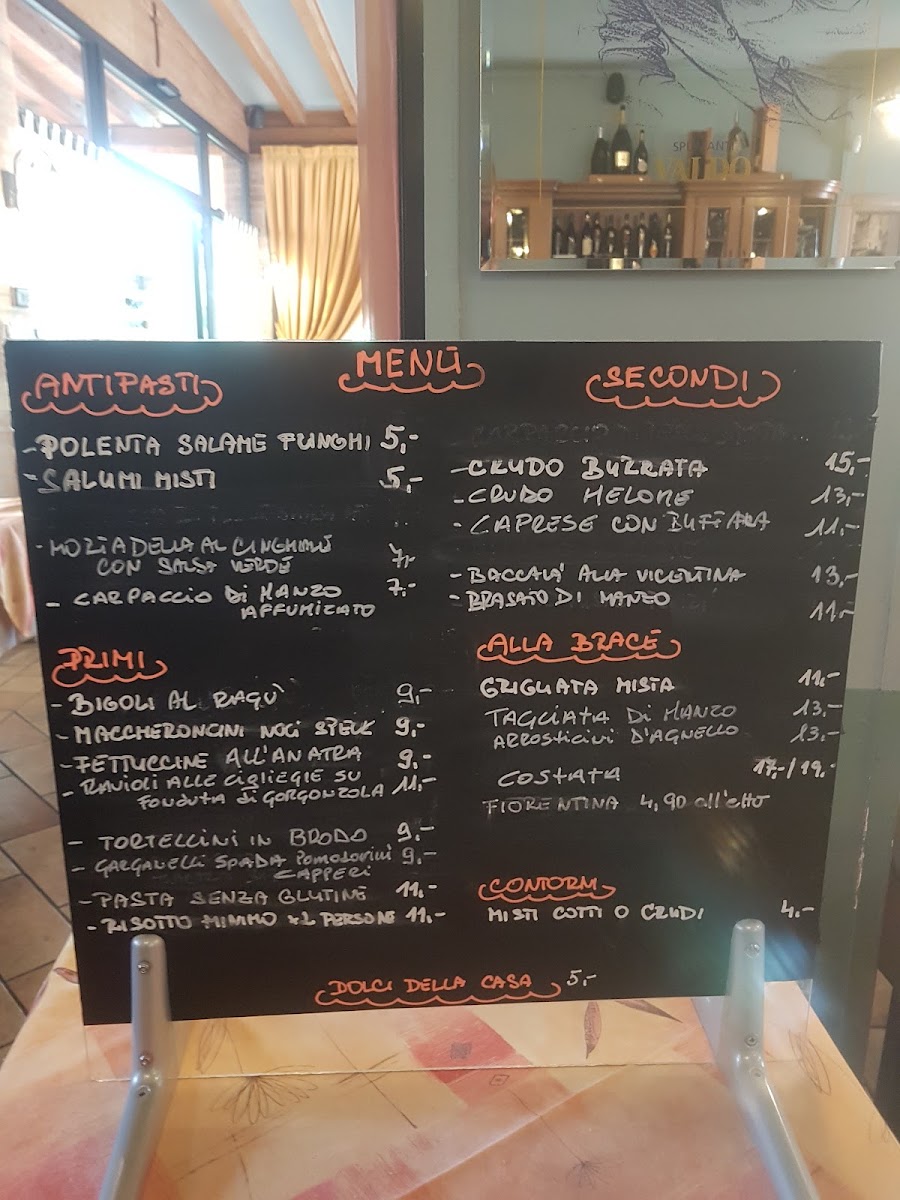 SPUMANTI
VALDO
MENÙ
ANTIPASTI
- POLENTA SALAME FUNGHI 5,-
- SALUMI MISTI 5,-
- MORTADELLA AL CINGHIALE 7,-
CON SALSA VERDE
- CARPACCIO DI MANZO 7.-
AFFUMICATO
PRIMI
- BIGOLI AL RAGU' 9,-
- MACCHERONCINI NOCI SPECK 9,-
- FETTUCCINE ALL'ANATRA 9,-
- RAVIOLI ALLE CIGLIEGIE SU
FONDUTA di GORGONZOLA 11,-
- TORTELLINI IN BRODO 9.-
- GARGANELLI SPADA POMODORINI 9,-
CAPPERI
- PASTA SENZA GLUTINE 11,-
- RISOTTO MIMMO x2 PERSONE 11.-
SECONDI
- CRUDO BURRATA 15,-
- CRUDO MELONE 13,-
- CAPRESE CON BUFFALA 11,-
- BACCALA' ALLA VICENTINA 13,-
- BRASATO DI MANZO 11,-
ALLA BRACE
GRIGLIATA MISTA 11,-
TAGLIATA DI MANZO 13.-
ARROSTICINI D'AGNELLO 13.-
COSTATA 17,-/19,-
FIORENTINA 4,90 all'etto
CONTORNI
MISTI COTTI O CRUDI 4.-
DOLCI DELLA CASA 5,-